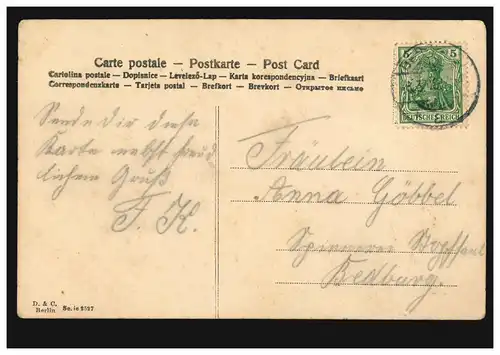 Carte postale — Postkarte — Post Card
Cartolina postale — Dopisnice — Levelező-Lap — Karta korespondencyjna — Briefkaart
Correspondenzkarte — Tarjeta postal — Brefkort — Brevkort — Открытое письмо
5
DEUTSCHES REICH
Sende Dir diese
Karte nebst freund
lichem Gruß
F. K.
Fräulein
Anna Göbbel
Spinnerei
Bedburg.
D. & C.
Berlin
No. ie 2527